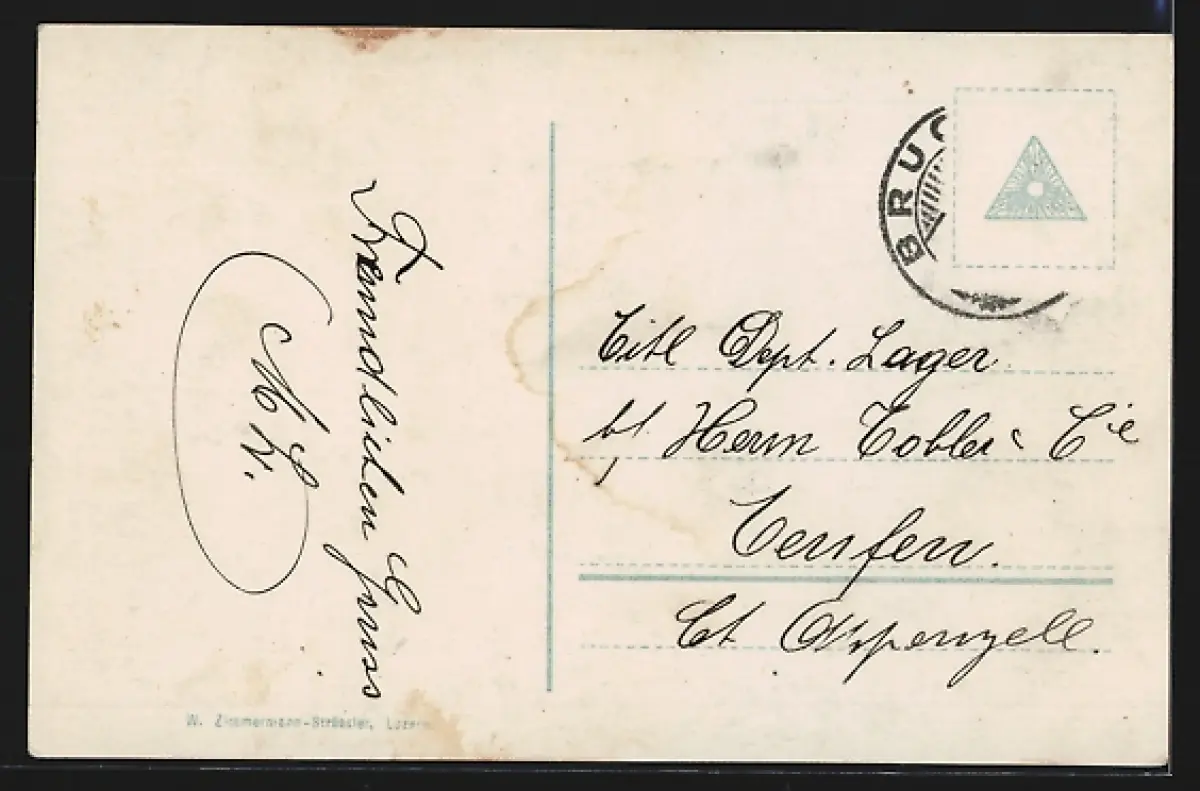 Freundlichen Gruss
M. K.
W. Zimmermann-Strässler, Luzern
BRUG
Titl Dept. Lager
b/. Herrn Tobler & Cie
Teufen.
Ct. Appenzell.